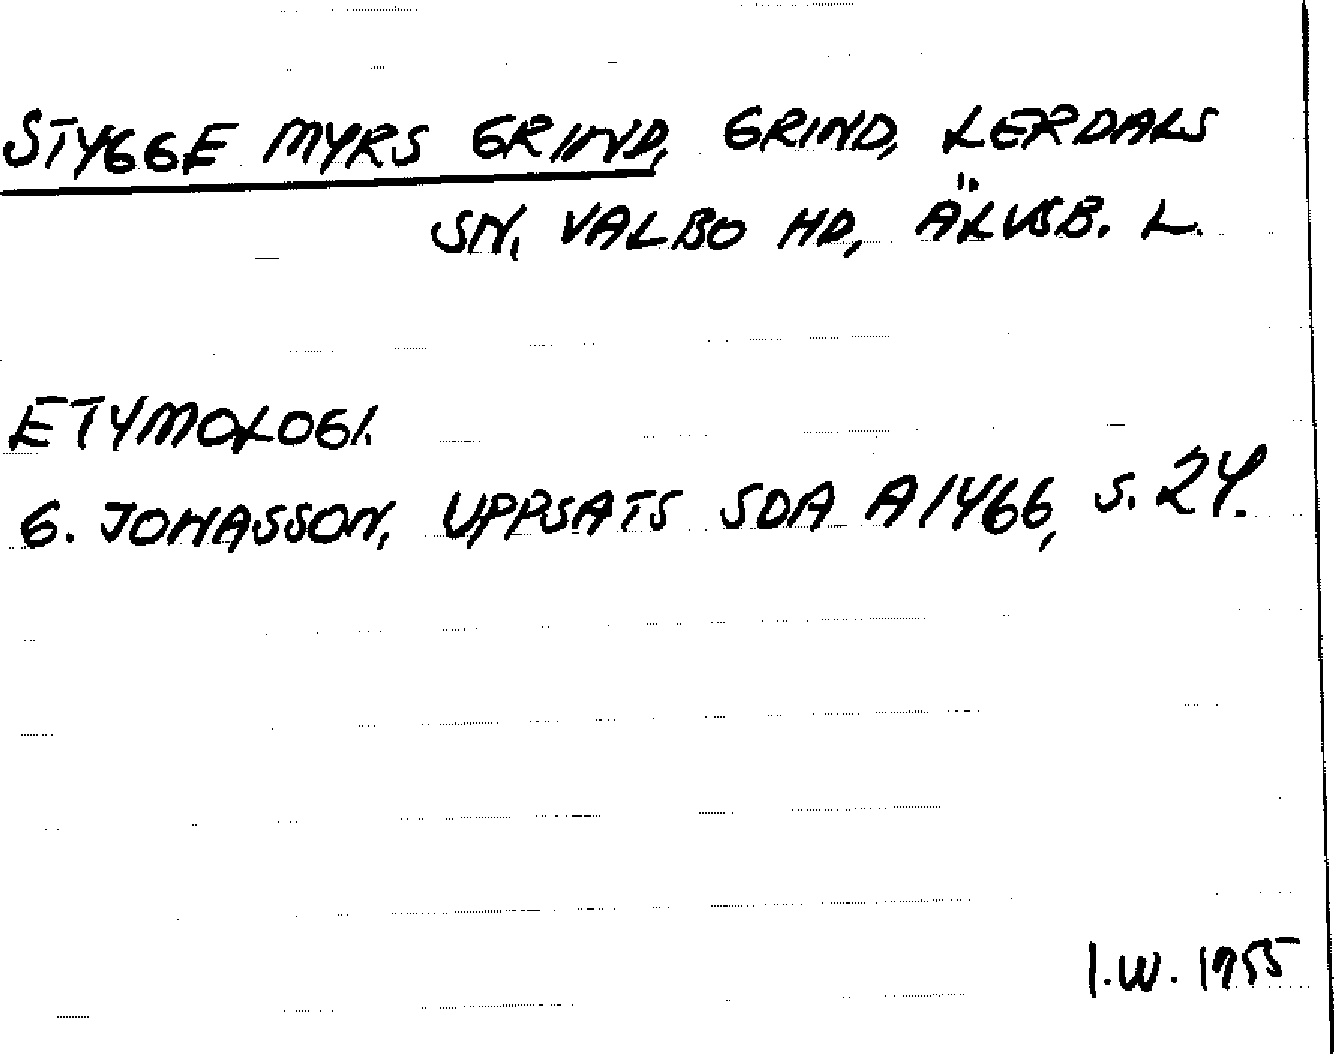 STYGGE MYRS GRIND, GRIND, LERDALS
SN, VALBO HD, ÄLVSB. L.
ETYMOLOGI.
G. JONASSON, UPPSATS SDA A1466, S. 24.
I.W. 1955